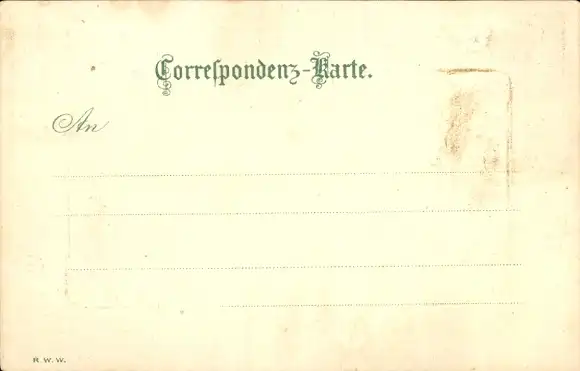 Correſpondenz-Karte.
An
R. W. W.